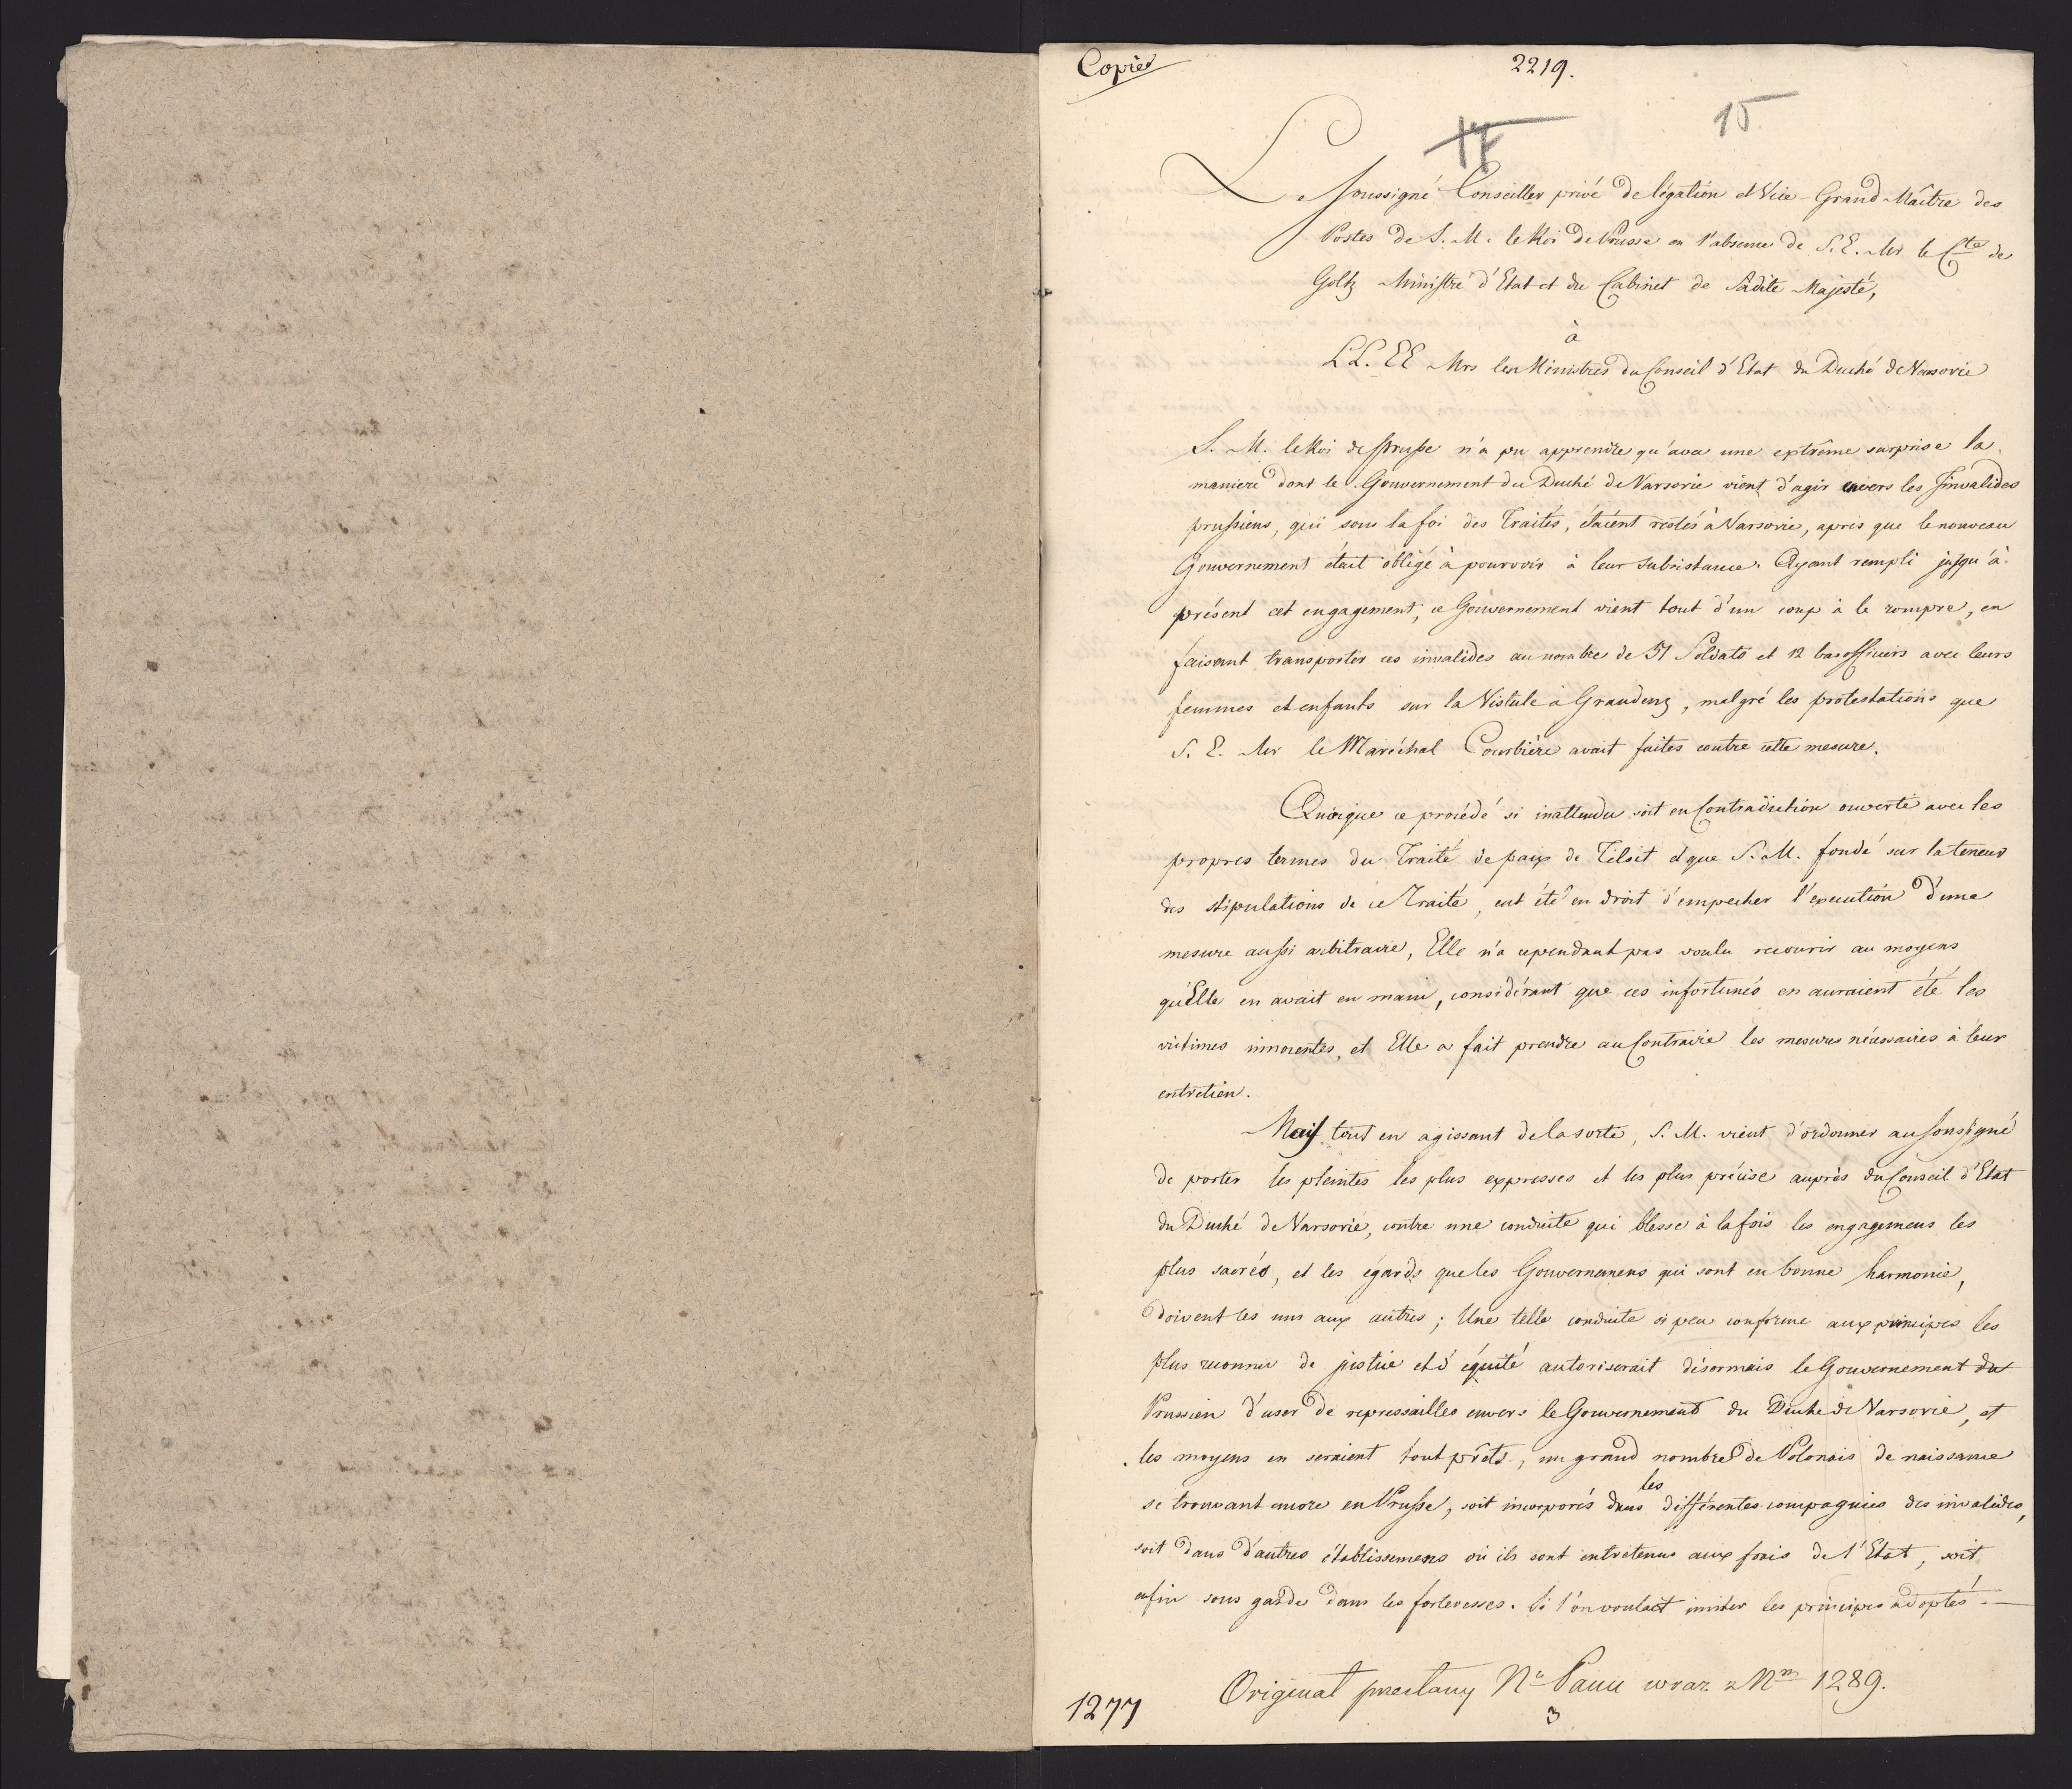 Copie
2219.
17
15
Le soussigné Conseiller privé de légation et Vice-Grand-Maître des
Postes de S. M. le Roi de Prusse en l'absence de S. E. Mr le Cte de
Goltz Ministre d'Etat et du Cabinet de Sadite Majesté,
à
LL. EE Mrs les Ministres du Conseil d'Etat du Duché de Varsovie
S. M. le Roi de Prusse n'a pu apprendre qu'avec une extrême surprise la
maniere dont le Gouvernement du Duché de Varsovie vient d'agir envers les Invalides
prussiens, qui sous la foi des Traités, étaient restés à Varsovie, après que le nouveau
Gouvernement était obligé à pourvoir à leur subsistance. Ayant rempli jusqu'à
présent cet engagement, ce Gouvernement vient tout d'un coup à le rompre, en
faisant transporter ces invalides au nombre de 51 Soldats et 12 bas officiers avec leurs
femmes et enfants sur la Vistule à Graudenz, malgré les protestations que
S. E. Mr le Maréchal Courbière avait faites contre cette mesure.
Quoique ce procédé si inattendu soit en Contradiction ouverte avec les
propres termes du Traité de paix de Tilsit et que S. M. fondé sur la teneur
des stipulations de ce Traité, eut été en droit d'empecher l'execution d'une
mesure aussi arbitraire, Elle n'a cependant pas voulu recourir au moyens
qu'Elle en avait en main, considérant que ces infortunés en auraient été les
victimes innocentes, et Elle a fait prendre au Contraire les mesures nécessaires à leur
entretien.
Mais tout en agissant de la sorte, S. M. vient d'ordonner au sousigné
de porter les pleintes les plus expresses et les plus précise auprès du Conseil d'Etat
du Duché de Varsovie, contre une conduite qui blesse à la fois les engagemens les
plus sacrés, et les égards que les Gouvernemens qui sont en bonne harmonie,
doivent les uns aux autres; Une telle conduite si peu conforme aux principes les
plus reconnu de justice et d'équité autoriserait désormais le Gouvernement du
Prussien d'user de repressailles envers le Gouvernement du Duche de Varsovie, et
les moyens en seraient tout prêts, un grand nombre de Polonais de naissance
se trouvant encore en Prusse, soit incorporés dans les différentes compagnies des invalides,
soit dans d'autres établissemens où ils sont entretenus aux frais de l'Etat, soit
enfin sous garde dans les forteresses. Si l'on voulait imiter les principes adoptés
Original Panu wraz z Nm 1289.
3
1277